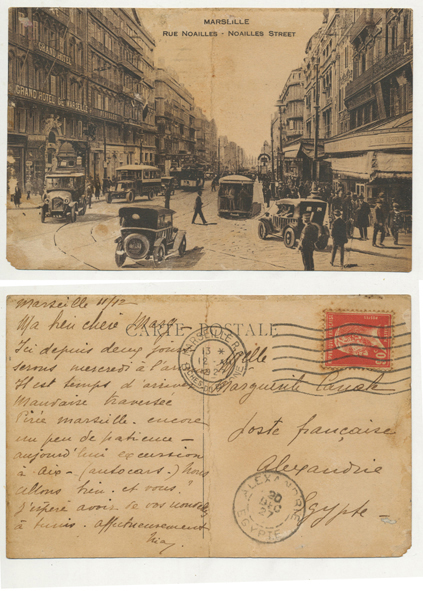 MARSLILLE
RUE NOAILLES - NOAILLES STREET
GRAND HOTEL
GRAND HOTEL DE
CARTE POSTALE
Marseille 11/12
Ma bien chère Mary
Ici depuis deux jours
serons mercredi à
Il est temps d'arriver
Mauvaise traversée
Pirée marseille. encore
un peu de patience -
aujourd'hui excursion
à aix - (autocars.) Nous
allons bien. et vous?
J'espère avoir de vos nouvelles
à tunis. affectueusement
MARSEILLE
13 *
12
Marguerite
Poste française
Alexandrie
Egypte -
ALEXANDRIE
20
DEC
27
EGYPTE